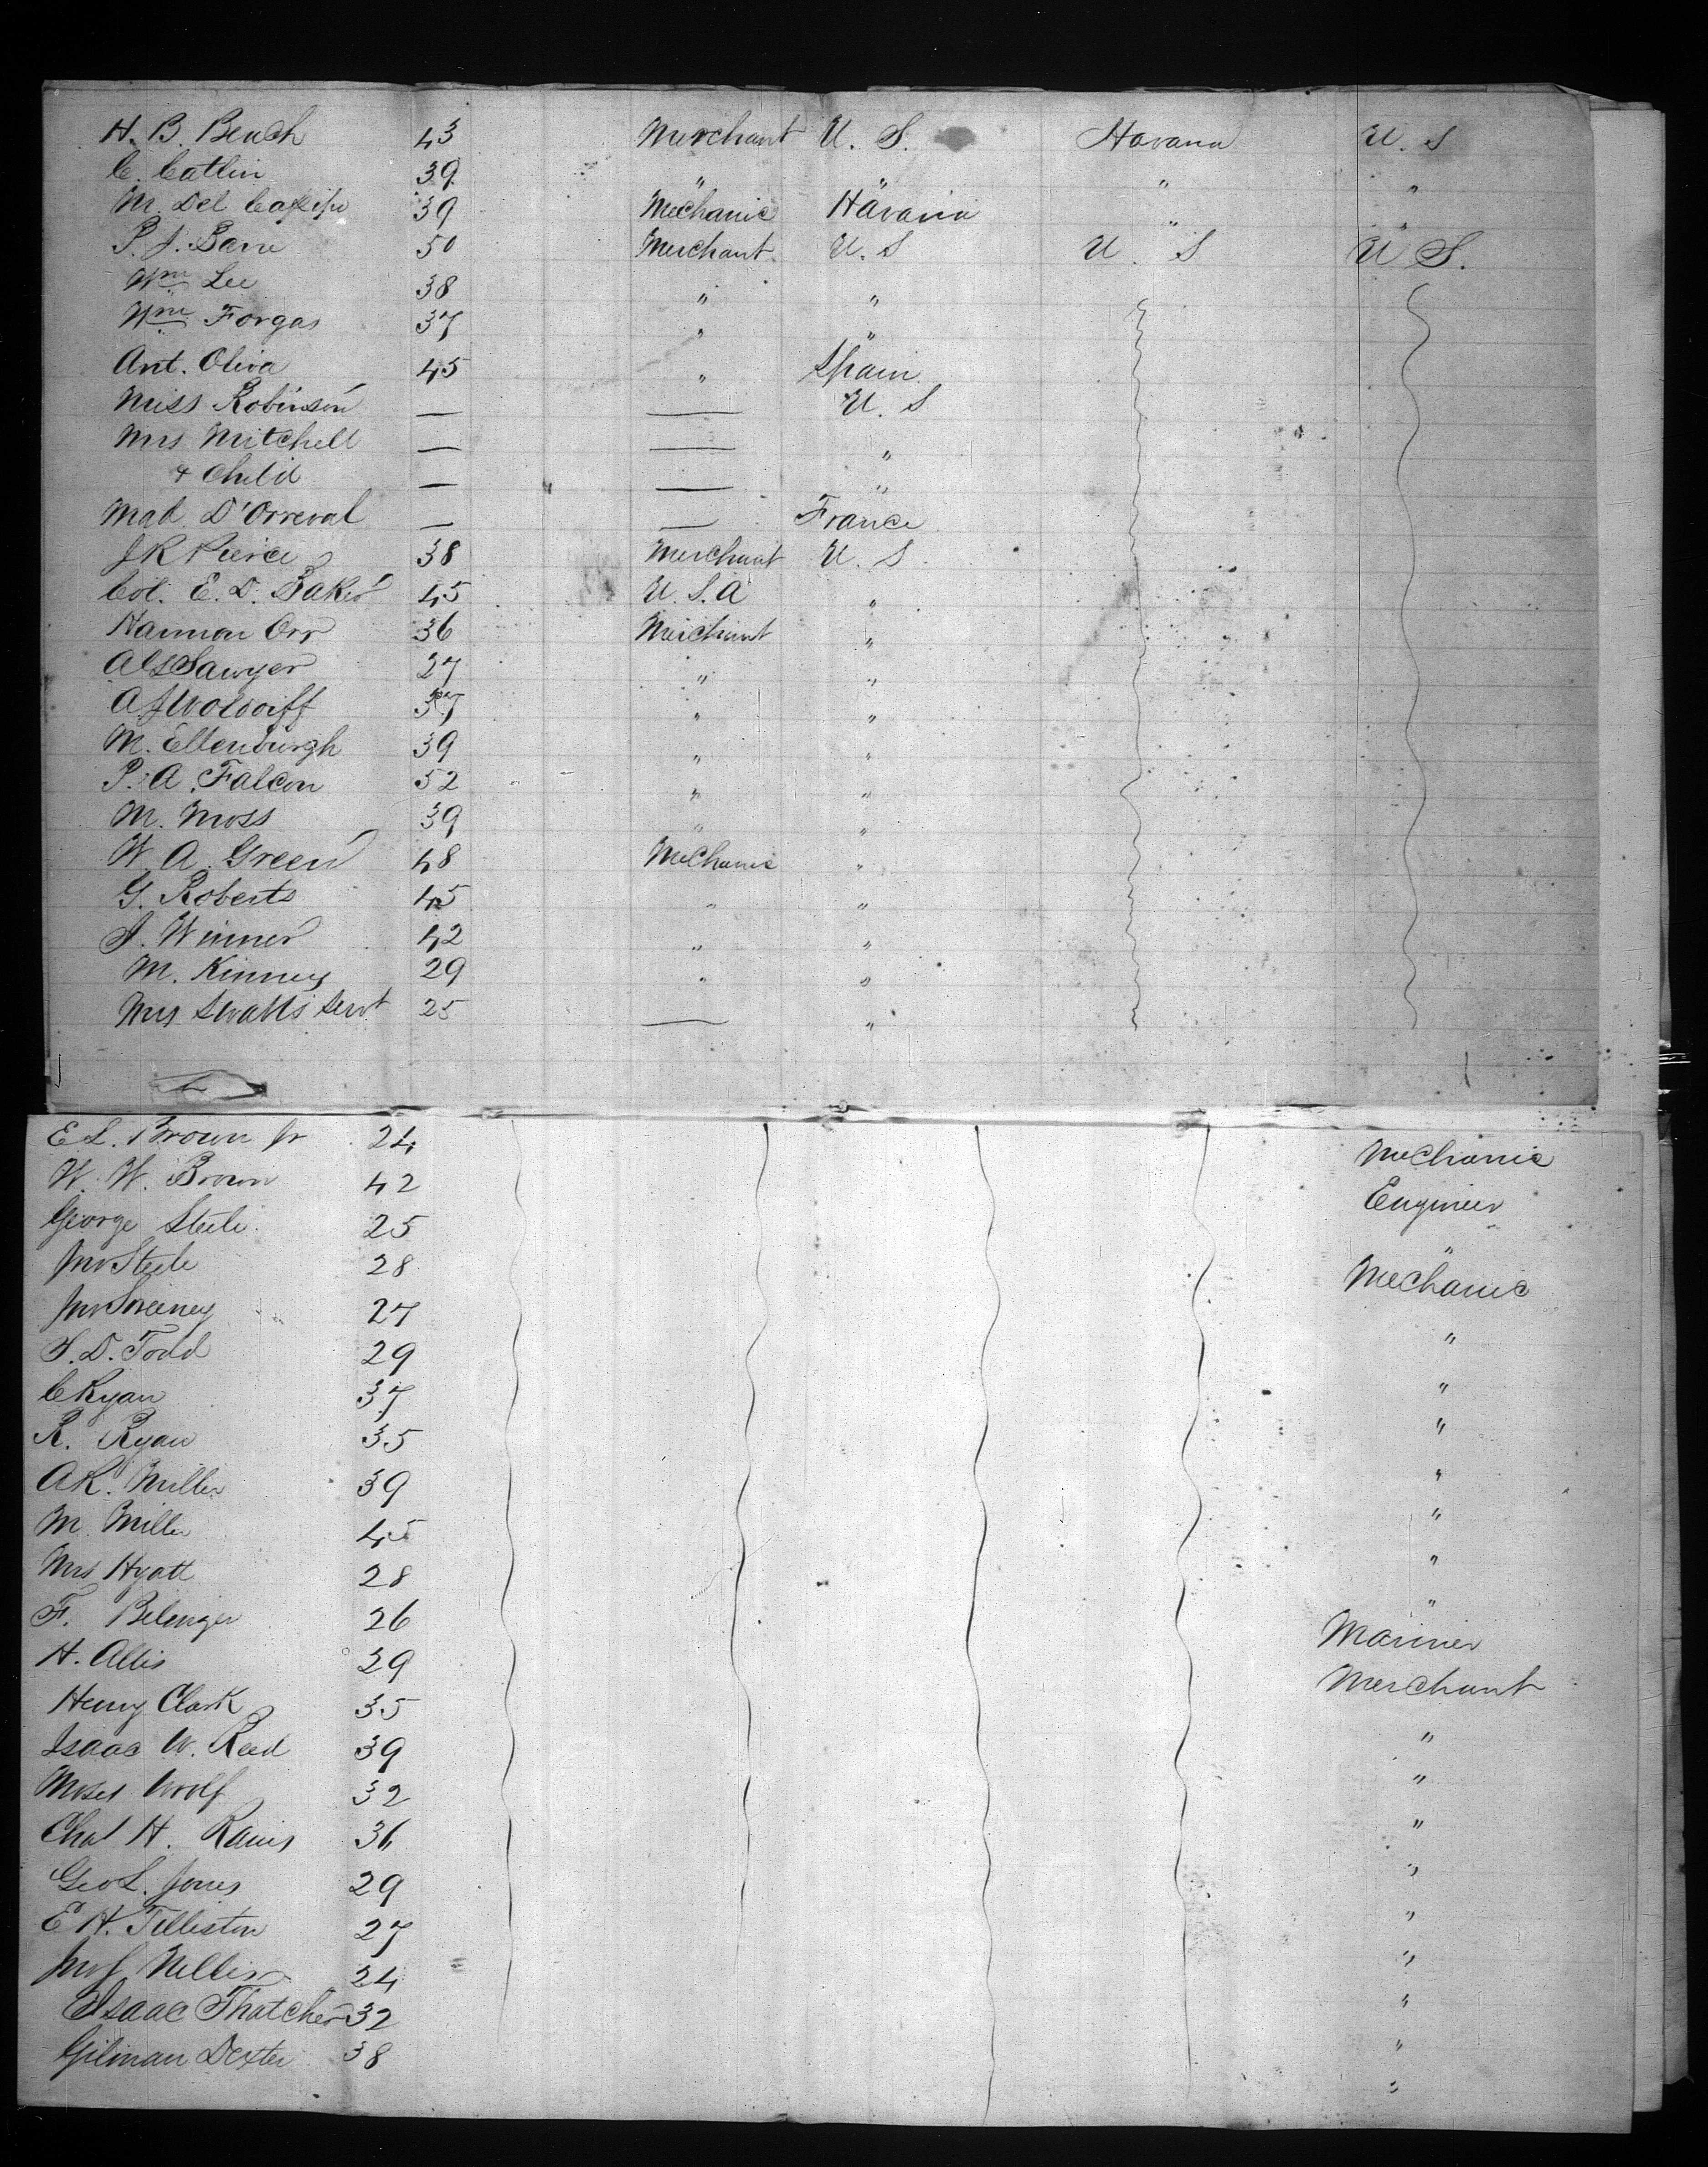 H. B. Beach 43 Merchant U. S. Havana U. S
C. Catlin 39 " " " "
M. Del 39 Mechanic Havana " "
P. J. Bane 50 Merchant U. S U. S U S.
Wm Lee 38 " "
Wm Forgas 37 " "
Ant. Oliva 45 " Spain
Miss Robinson — — U. S
Mrs Mitchell — — "
+ Child — — "
Mad. D'Orreval — — France
J R Pierce 38 Merchant U. S
Col. E. D. Baker 45 U. S. A "
Harmon Orr 36 Merchant "
Sawyer 27 " "
A J 37 " "
M. Ellenburgh 39 " "
P. A. Falcon 52 " "
M. Moss 39 " "
W. A. Green 48 Mechanic "
G. Roberts 45 " "
J. Winner 42 " "
M. Kinney 29 " "
Mrs Swatts Servt 25 — "
E L. Brown Jr 24 Mechanic
W. W. Brown 42 Engineer
George Steele 25 "
Jno Steele 28 Mechanic
Jno Sweeney 27 "
S. D. Todd 29 "
C Ryan 37 "
R. Ryan 35 "
A R. Miller 39 "
M. Miller 45 "
Mrs Hyatt 28 "
F. Belenger 26 Mariner
H. Allis 29 Merchant
Henry Clark 35 "
Isaac W. Reed 39 "
Moses Wolf 32 "
Chas H. 36 "
Geo L. Jones 29 "
E H. Tilliston 27 "
24 "
Isaac Thatcher 32 "
Gilman Dexter 38 "